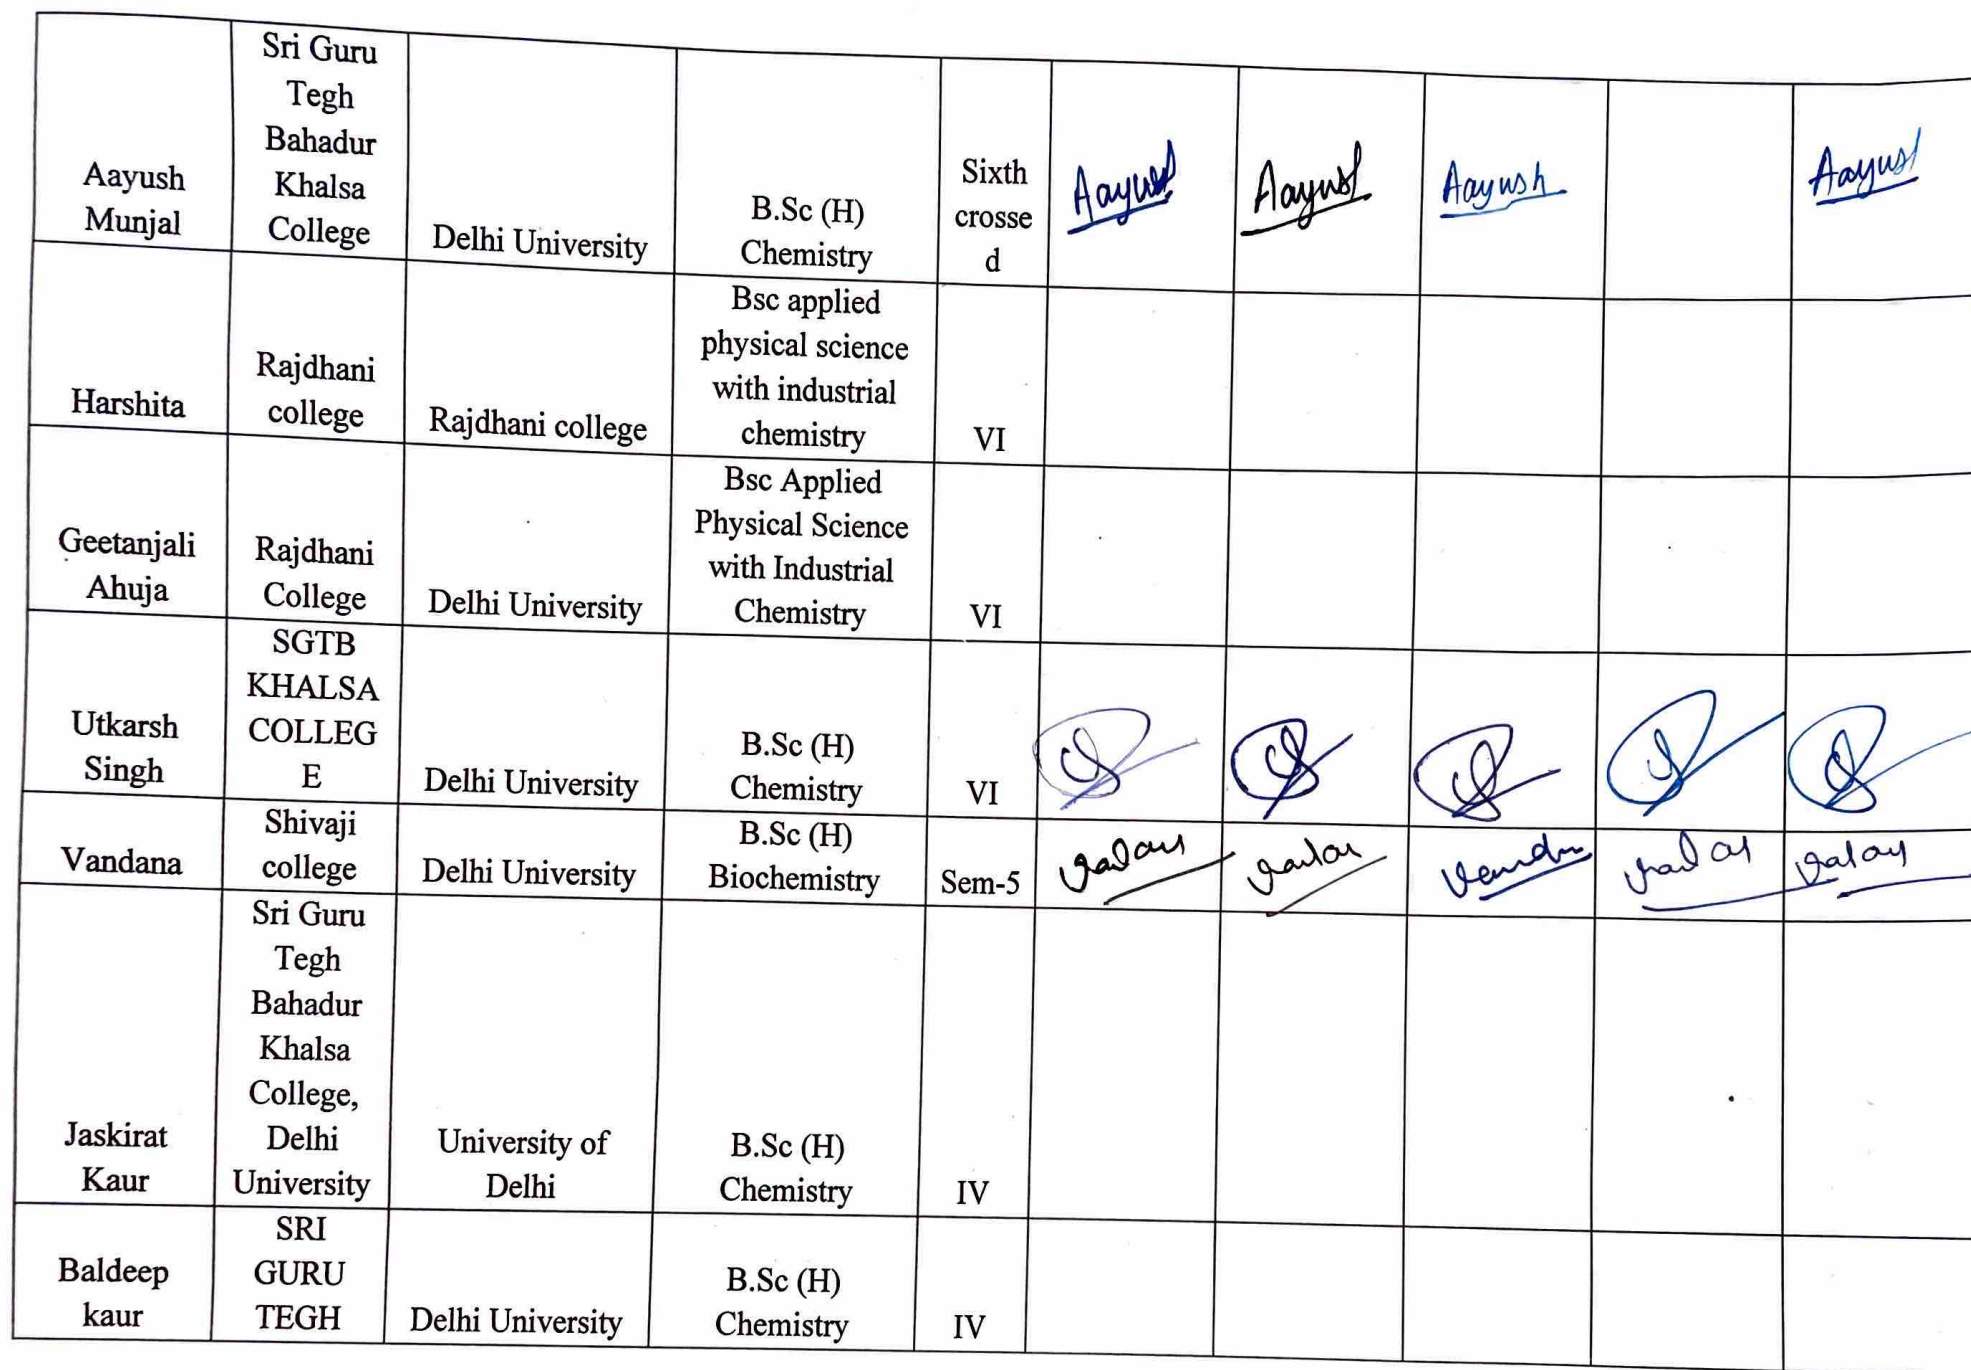 Aayush
Munjal
Sri Guru
Tegh
Bahadur
Khalsa
College
Delhi University
B.Sc (H)
Chemistry
Sixth
crosse
d
Aayush
Aayush
Aayush
Aayush
Harshita
Rajdhani
college
Rajdhani college
Bsc applied
physical science
with industrial
chemistry
VI
Geetanjali
Ahuja
Rajdhani
College
Delhi University
Bsc Applied
Physical Science
with Industrial
Chemistry
VI
Utkarsh
Singh
SGTB
KHALSA
COLLEG
E
Delhi University
B.Sc (H)
Chemistry
VI
Vandana
Shivaji
college
Delhi University
B.Sc (H)
Biochemistry
Sem-5
Jaskirat
Kaur
Sri Guru
Tegh
Bahadur
Khalsa
College,
Delhi
University
University of
Delhi
B.Sc (H)
Chemistry
IV
Baldeep
kaur
SRI
GURU
TEGH
Delhi University
B.Sc (H)
Chemistry
IV